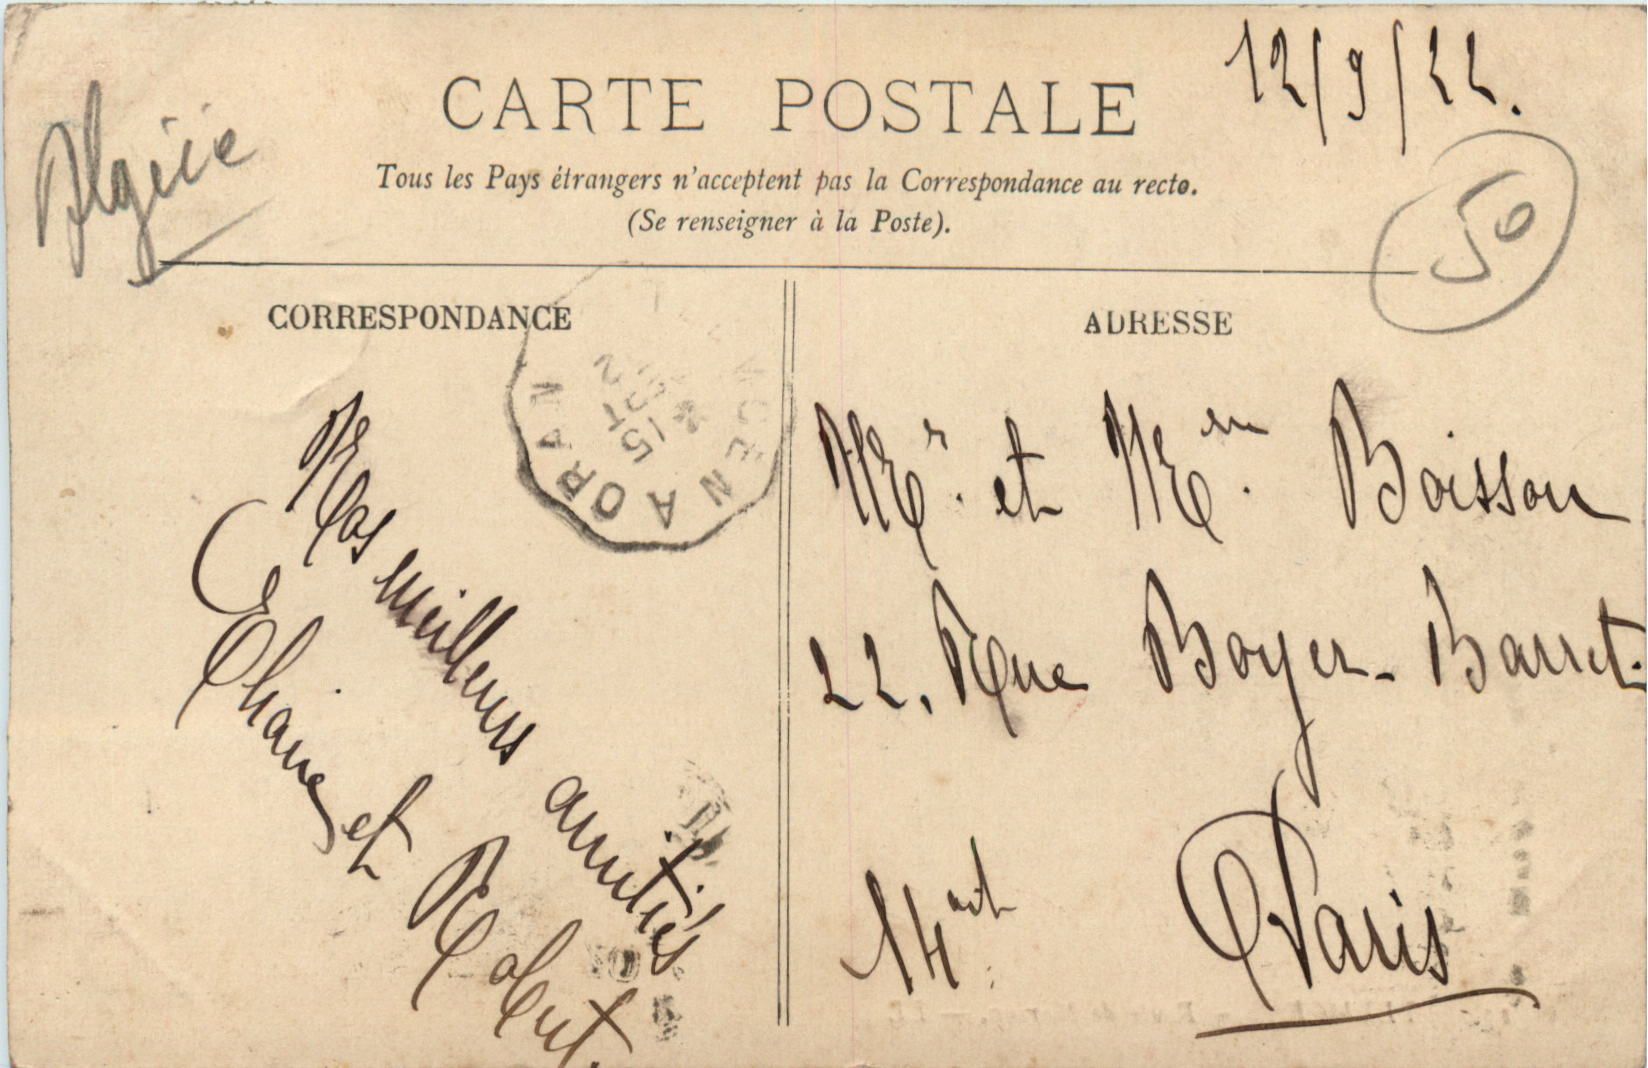 Algérie
12/9/22.
CARTE POSTALE
Tous les Pays étrangers n'acceptent pas la Correspondance au recto.
(Se renseigner à la Poste).
50
CORRESPONDANCE
ADRESSE
A ORAN
15
Nos meilleurs amitiés
et Robert.
Mr. et Mme. Boisson
22, Rue Boyer-Barret.
14art.
Paris